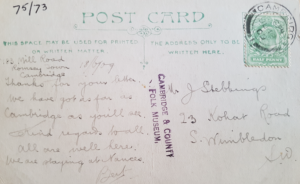 75/73
POST CARD.
THIS SPACE MAY BE USED FOR PRINTED
OR WRITTEN MATTER.
THE ADDRESS ONLY TO BE
WRITTEN HERE.
CAMBRIDGE
HALF PENNY
Mill Road
Romsey Town
Cambridge
Thanks for yours
We have
Cambridge as you'll see
Kind regards to all
All are well here.
We are staying at
CAMBRIDGE & COUNTY
FOLK MUSEUM.
Mr J Stebbings
23 Kohat Road
S. Wimbledon
S.W.